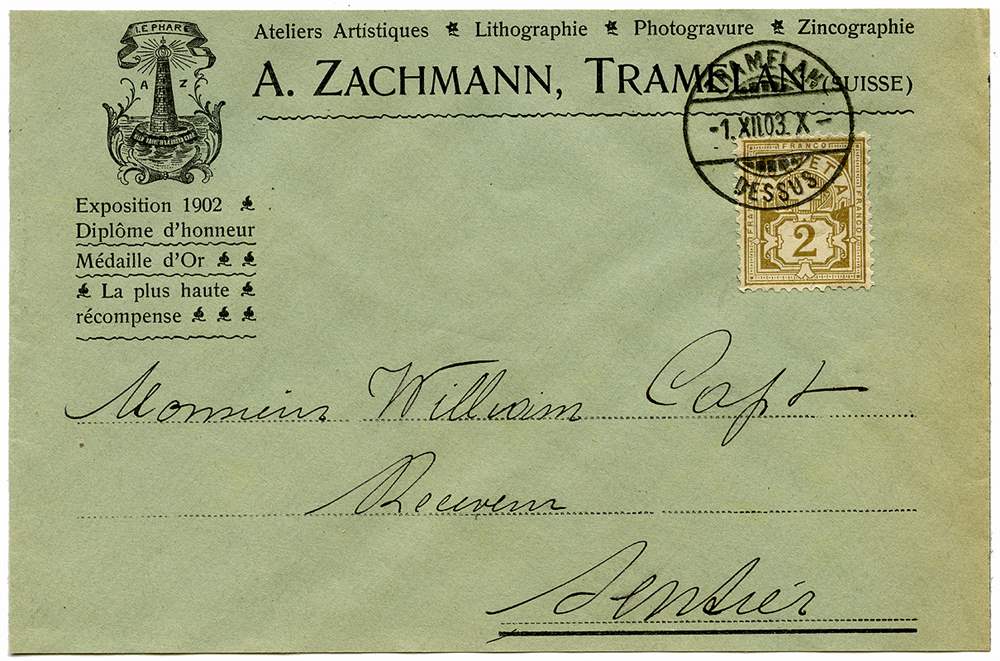 LE PHARE
A Z
Ateliers Artistiques Lithographie Photogravure Zincographie
A. ZACHMANN, TRAMELAN (SUISSE)
TRAMELAN
-1.XII.03.X-
DESSUS
Exposition 1902
Diplôme d'honneur
Médaille d'Or
La plus haute
récompense
FRANCO
FRANCO
FRANCO
2
Monsieur William Capt
Receveur
Sentier